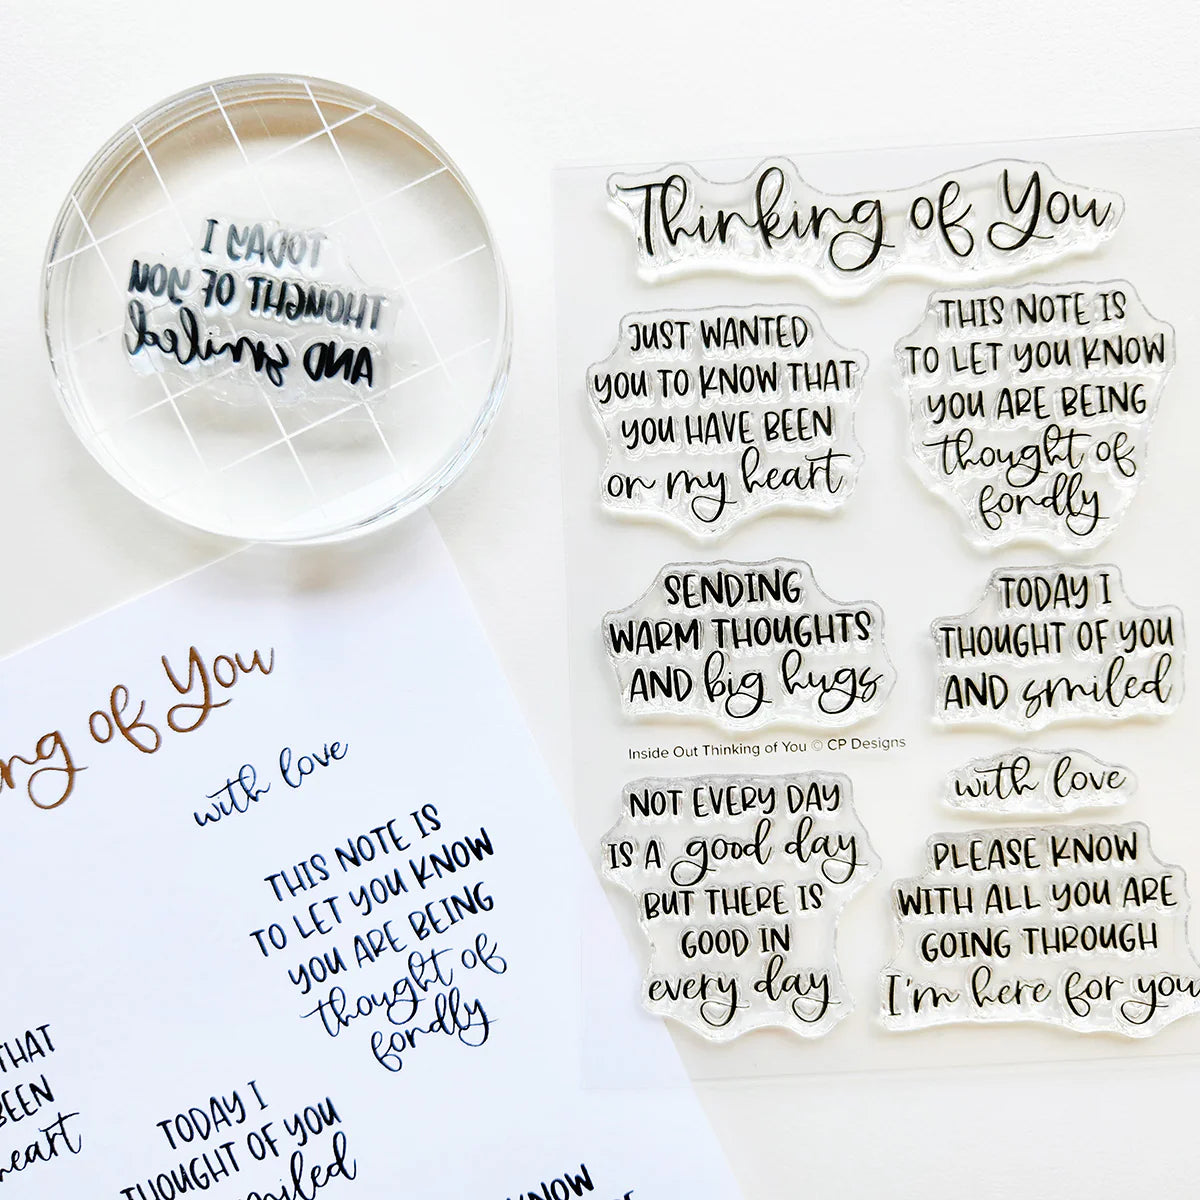 I TODAY
THOUGHT OF YOU
AND smiled
Thinking of You
JUST WANTED
YOU TO KNOW THAT
YOU HAVE BEEN
on my heart
THIS NOTE IS
TO LET YOU KNOW
YOU ARE BEING
thought of
fondly
SENDING
WARM THOUGHTS
AND big hugs
TODAY I
THOUGHT OF YOU
AND smiled
Inside Out Thinking of You © CP Designs
with love
NOT EVERY DAY
IS A good day
BUT THERE IS
GOOD IN
every day
PLEASE KNOW
WITH ALL YOU ARE
GOING THROUGH
I'm here for you
ng of You
with love
THIS NOTE IS
TO LET YOU KNOW
YOU ARE BEING
thought of
fondly
THAT
BEEN
heart
TODAY I
THOUGHT OF YOU
smiled
KNOW